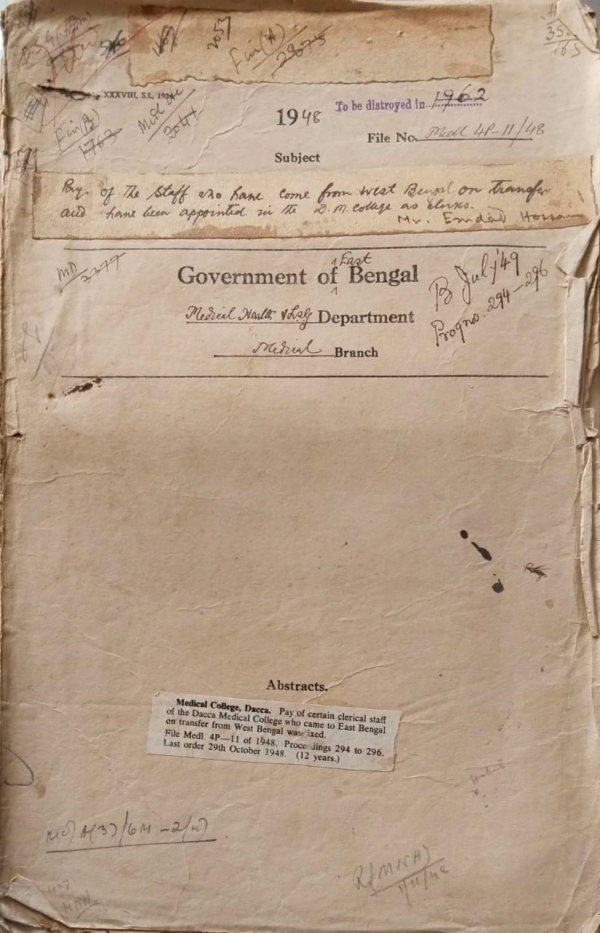 2053
Fin(A)
2875
353
165
XXXVIII, S.L. 19
Fin(B)
1763
3044
1948
To be distroyed in 1962
File No. Medl 4P-11/48
Subject
Pay of the staff who have come from West Bengal on transfer
and have been appointed in the D.M. College as clerks.
Mr. Emdad Hossain
MD
3377
East
Government of Bengal
Medical Health & LSG Department
Medical Branch
B July '49
Progno. 294-296
Abstracts.
Medical College, Dacca. Pay of certain clerical staff
of the Dacca Medical College who came to East Bengal
on transfer from West Bengal was fixed.
File Medl. 4P—11 of 1948. Proceedings 294 to 296.
Last order 29th October 1948. (12 years.)
R(M&H)